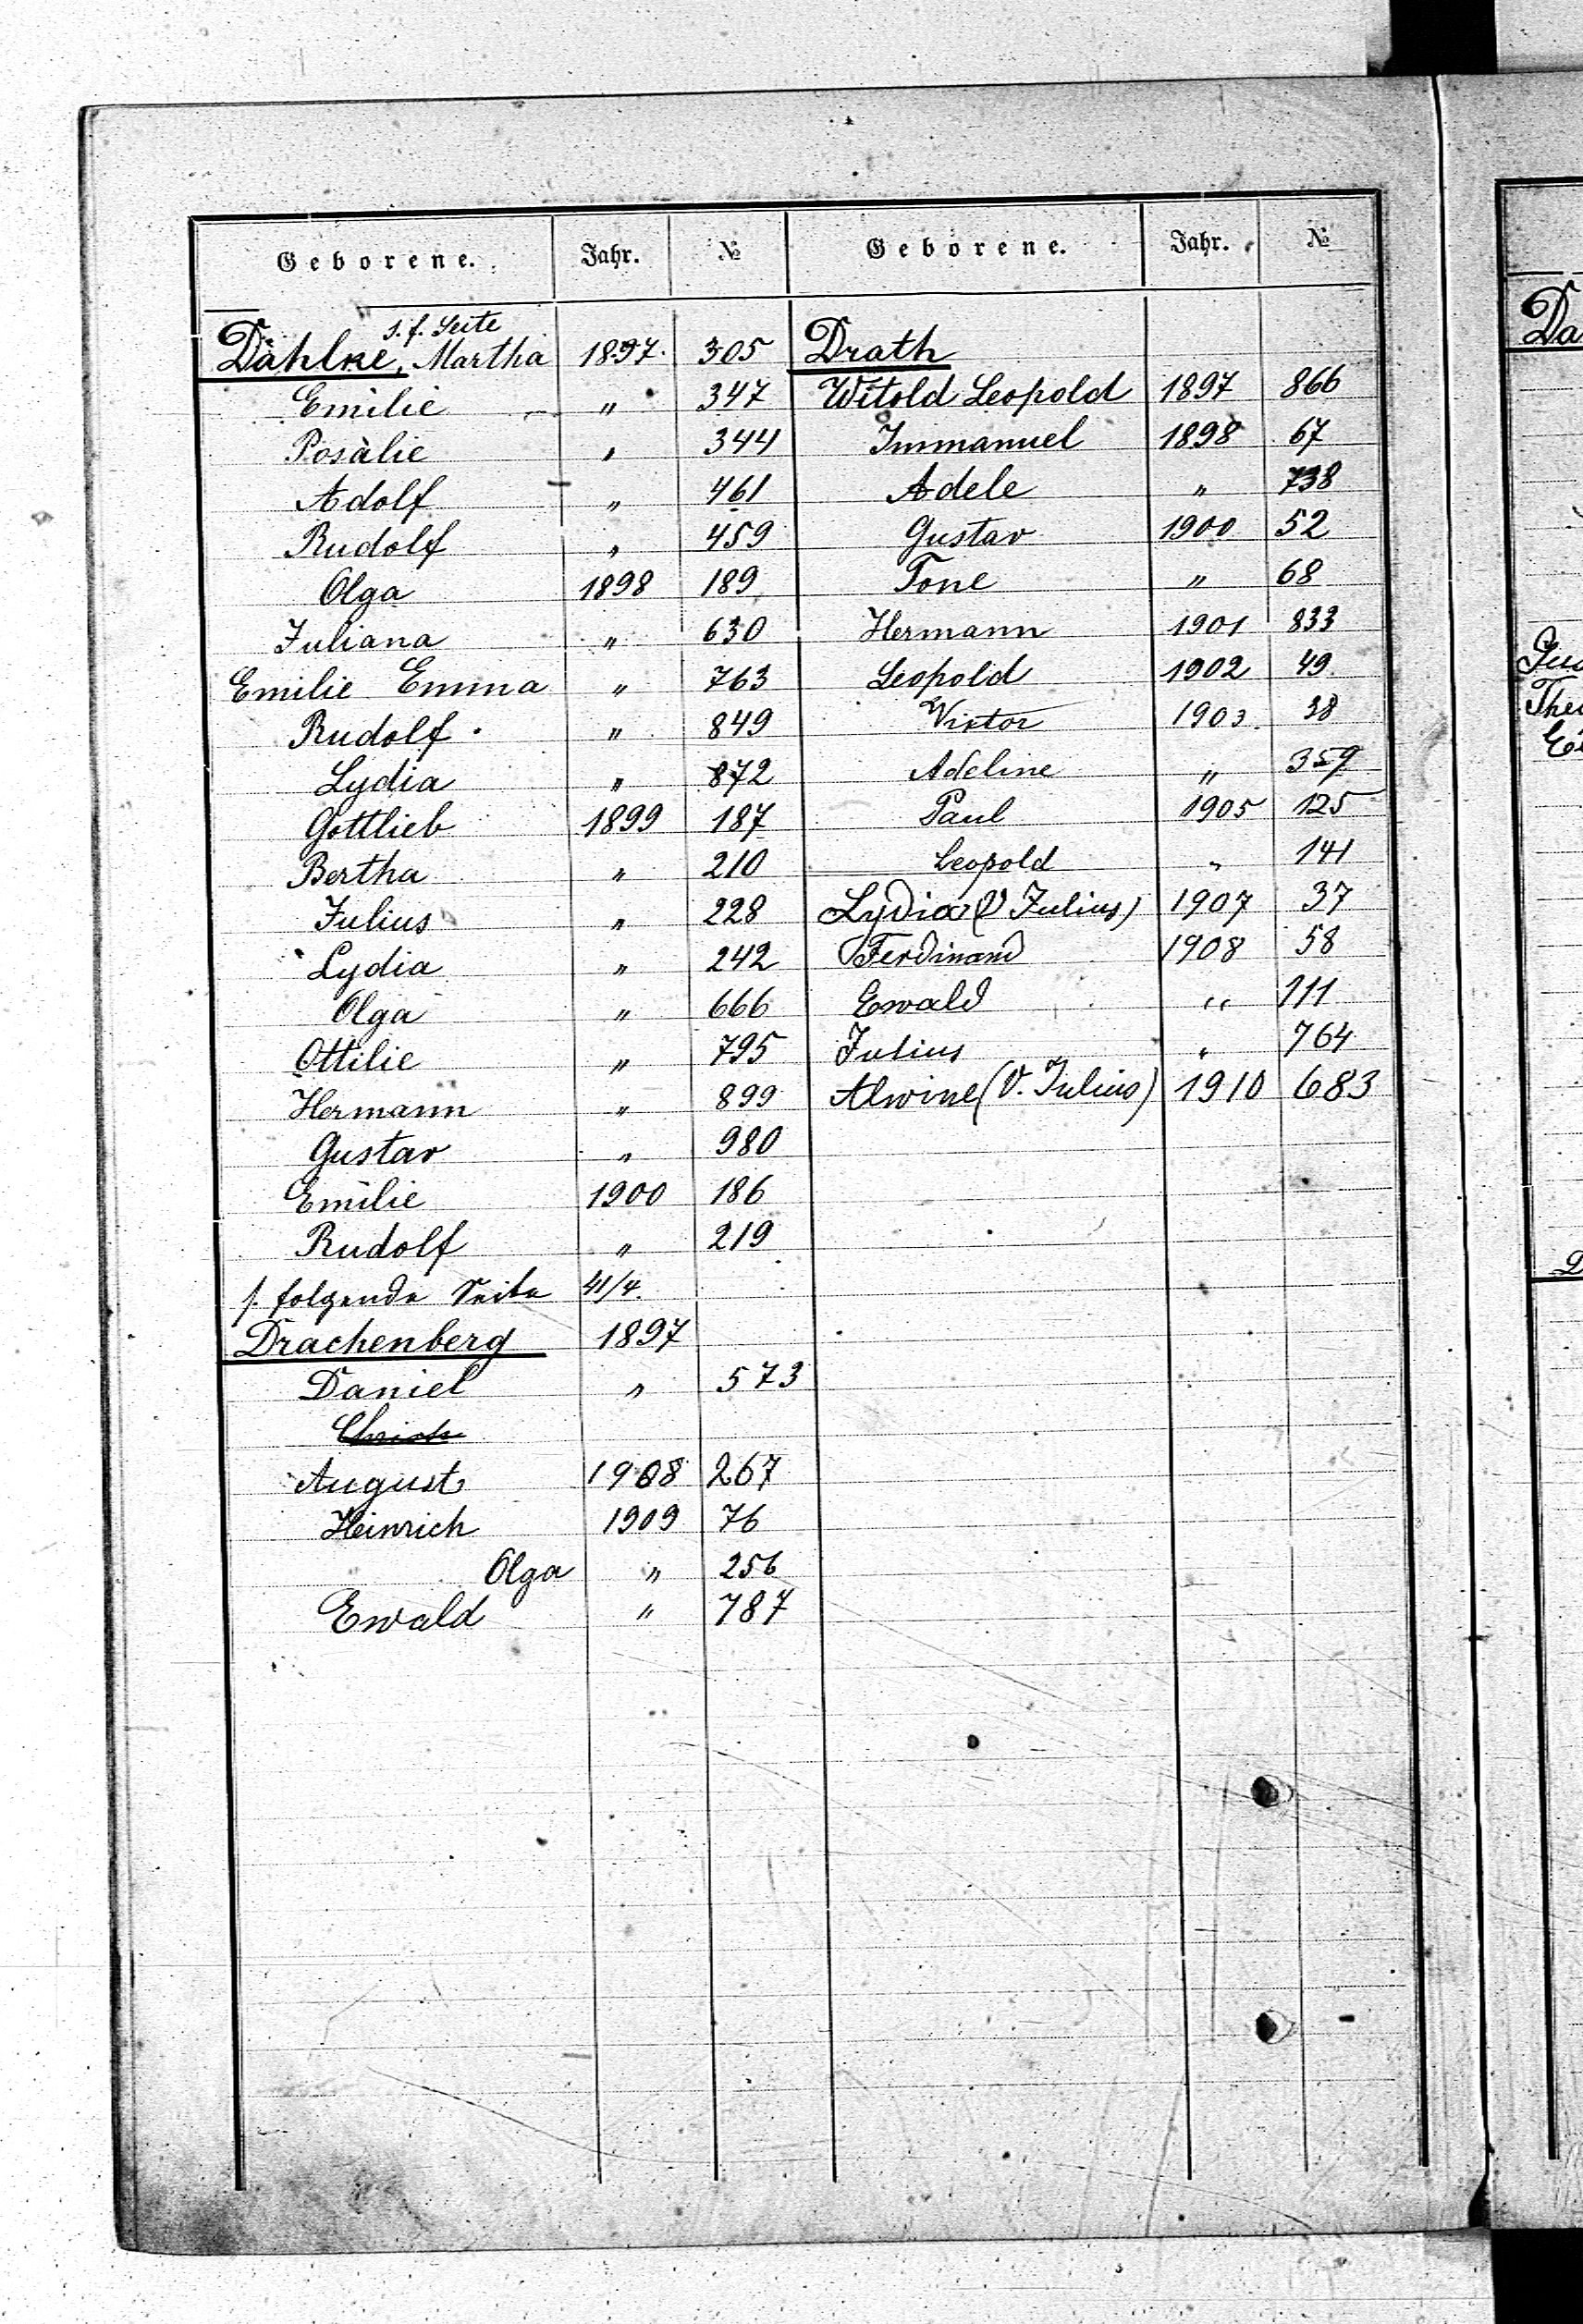 Geborene. Jahr. №
s. f. Seite
Dählke, Martha 1897. 305
Emilie " 347
Rosalie " 344
Adolf " 461
Rudolf " 459
Olga 1898 189
Juliana " 630
Emilie Emma " 763
Rudolf " 849
Lydia " 872
Gottlieb 1899 187
Bertha " 210
Julius " 228
Lydia " 242
Olga " 666
Ottilie " 795
Hermann " 899
Gustav " 980
Emilie 1900 186
Rudolf " 219
s. folgende Seite 41/4.
Drachenberg 1897
Daniel " 573
August 1908 267
Heinrich 1909 76
Olga " 256
Ewald " 787
Geborene. Jahr. №
Drath
Witold Leopold 1897 866
Immanuel 1898 67
Adele " 738
Gustav 1900 52
Tone " 68
Hermann 1901 833
Leopold 1902 49
Viktor 1903 38
Adeline " 359
Paul 1905 125
Leopold " 141
Lydia (V Julius) 1907 37
Ferdinand 1908 58
Ewald " 111
Julius " 764
Alwine (V. Julius) 1910 683
Da